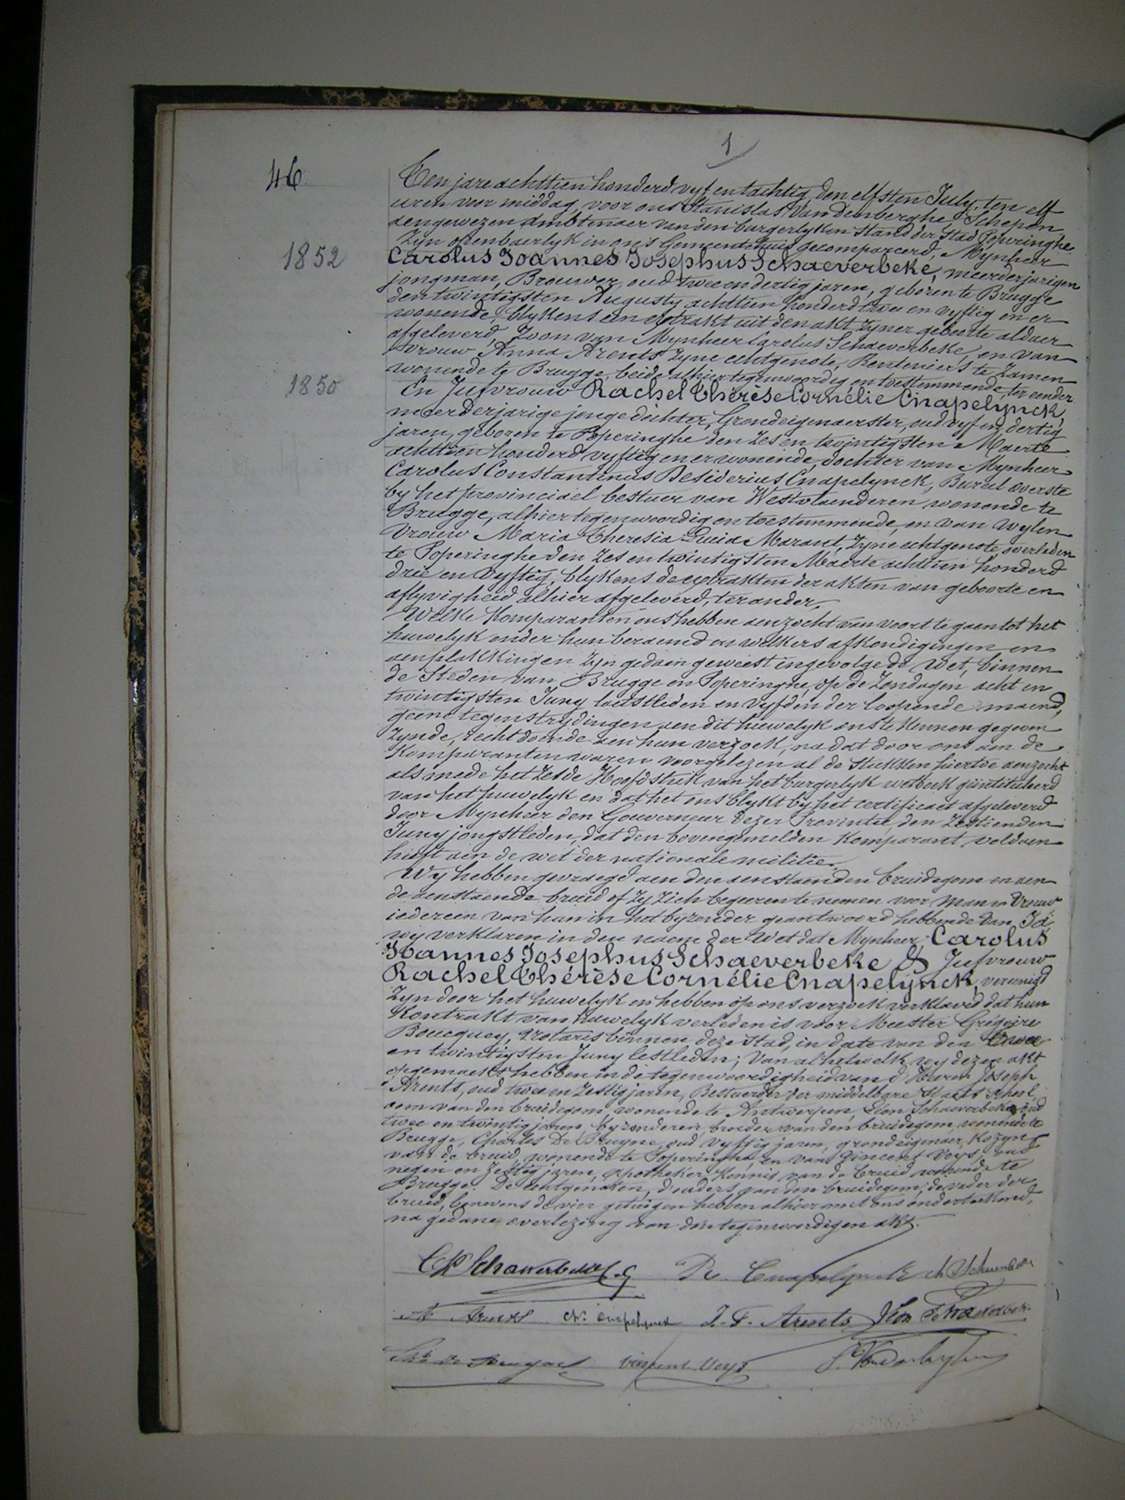 1
46
Ten jare achttien honderd vyf en tachtig, den elfsten July, ten elf
uren voor middag, voor ons Stanislas Van den berghe Schepen
aengewezen Ambtenaer van den burgerlyken Stand der Stad Poperinghe
Zyn openbaerlyk in ons Gemeentehuis gecompareerd, Mynheer
1852
Carolus Joannes Josephus Schaeverbeke, meerderjarigen
jongman, Brouwer, oud twee en dertig jaren, geboren te Brugge
den twintigsten Augusty achttien honderd twee en vyftig en er
wonende, blykens een extrakt uit den akt zyner geboorte aldaer
afgeleverd, Zoon van Mynheer Carolus Schaeverbeke, en van
Vrouw Anna Arents zyne echtgenote, Renteniers te zamen
wonende te Brugge, beide alhier tegenwoordig en toestemmende, ter eender
1850
En Jufvrouw Rachel Thérèse Cornélie Cnapelynck,
meerderjarige jonge dochter, Grondeigenaerster, oud vyf en dertig
jaren, geboren te Poperinghe den zes en twintigsten Maerte
achttien honderd vyftig en er wonende, dochter van Mynheer
Carolus Constantinus Desiderius Cnapelynck, Bureel overste
by het provinciael bestuer van Westvlaenderen wonende te
Brugge, alhier tegenwoordig en toestemmende, en van wylen
Vrouw Maria Theresia Lucia Marant, zyne echtgenote, overleden
te Poperinghe den zes en twintigsten Maerte achttien honderd
drie en vyftig, blykens de extrakten der akten van geboorte en
aflyvigheid alhier afgeleverd, ter ander.
Welke Komparanten ons hebben aenzocht van voort te gaen tot het
huwelyk onder hun beraemd en welkers afkondigingen en
aenplakkingen zyn gedaen geweest ingevolge de Wet, binnen
de Steden van Brugge en Poperinghe, op de Zondagen acht en
twintigsten Juny laetstleden en vyfden der loopende maend,
geene tegenstrydingen aen dit huwelyk ons te kennen gegeven
zynde, recht doende aen hun verzoek, na dat door ons aen de
Komparanten waren voorgelezen al de stukken hiertoe aenzocht
als mede het zesde Hoofdstuk van het burgerlyk wetboek geintituleerd
van het huwelyk en dat het ons blykt by het certificaet afgeleverd
door Mynheer den Gouverneur dezer Provintie, den zestienden
Juny jongstleden, dat den bovengemelden Komparant voldaen
heeft aen de wet der nationale militie.
Wy hebben gevraegd aen den aenstaenden bruidegom en aen
de aenstaende bruid of zy zich begeeren te nemen voor man en Vrouw
iedereen van hun in het byzonder geantwoord hebbende van Ja
wy verklaren in den naem der Wet dat Mynheer Carolus
Joannes Josephus Schaeverbeke & Jufvrouw
Rachel Thérèse Cornélie Cnapelynck, vereenigd
zyn door het huwelyk en hebben op ons verzoek verklaerd dat hun
Kontrakt van huwelyk verleden is voor Meester Grégoire
Boucquey, Notaris binnen deze stad, in date van den twee
en twintigsten Juny lestleden; Van al hetwelk wy dezen akt
opgemaekt hebben in de tegenwoordigheid van d'Heeren Joseph
Arents, oud twee en zestig jaren, Bestuerder der middelbare Staets school
oom van den bruidegom, wonende te Antwerpen, Leon Schaeverbeke, oud
twee en twintig jaren, byzonderen, broeder van den bruidegom, wonende te
Brugge, Charles De Bruyne, oud vyftig jaren, grondeigenaer, kozyn
van de bruid, wonende te Poperinghe, en van Vincent Veys, oud
negen en zestig jaren, apotheker, kennis van de bruid, wonende te
Brugge. De echtgenoten, d'ouders van den bruidegom, de vader der
bruid, benevens de vier getuigen hebben alhier met ons onderteekend,
na gedane overlezing van den tegenwoordigen akt.
R. Cnapelynck ch Schaeverbeke
A Arents Ch. Cnapelynck J. F. Arents Leon Schaeverbeke
Ch. De Bruyne Vincent Veys S. Vandenberghe